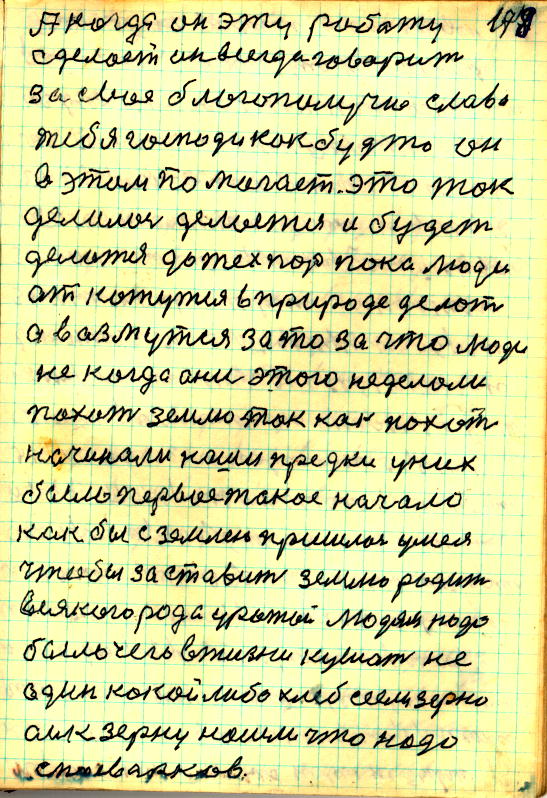 А когда он эту работу 198
сделоет он всегда говорит
за свое благополучие слава
тебя господи как будто он
в этом помагает. это так
делалось делается и будет
делатся до тех пор пока люди
от кажутся в природе делат
а возмутся за то за что люди
не когда они этого неделали
пахат землю так как пахат
начинали наши предки у них
было первое такое начало
как бы с землею пришлось умея
чтобы заставит землю родит
всякого рода урожай людям надо
было чего в жизни кушат не
один какой либо хлеб сеем зерно
а к зерну нашли что надо